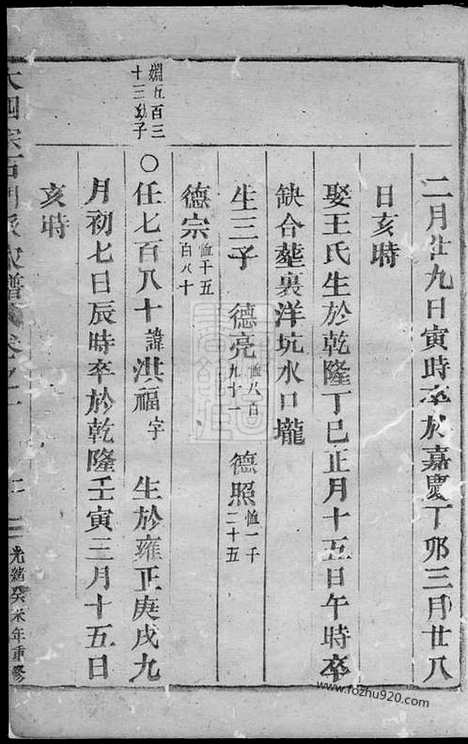 二月廿九日寅時卒於嘉慶丁卯三月廿八
日亥時
娶王氏生於乾隆丁巳正月十五日午時卒
缺合塟裏洋坑水口壠
生三子 德亮恤八百九十一 德照恤一千二十五
德宗恤千五百八十
嫺五百三十三幼子
○任七百八十諱洪福字 生於雍正庚戌九
月初七日辰時卒於乾隆壬寅三月十五日
亥時
光緒癸未年重修
www.fozhu920.com